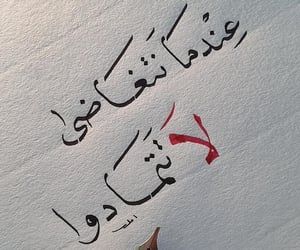 عِنْدمَا نَتَغَاضى
لَا تَتَمَادوا